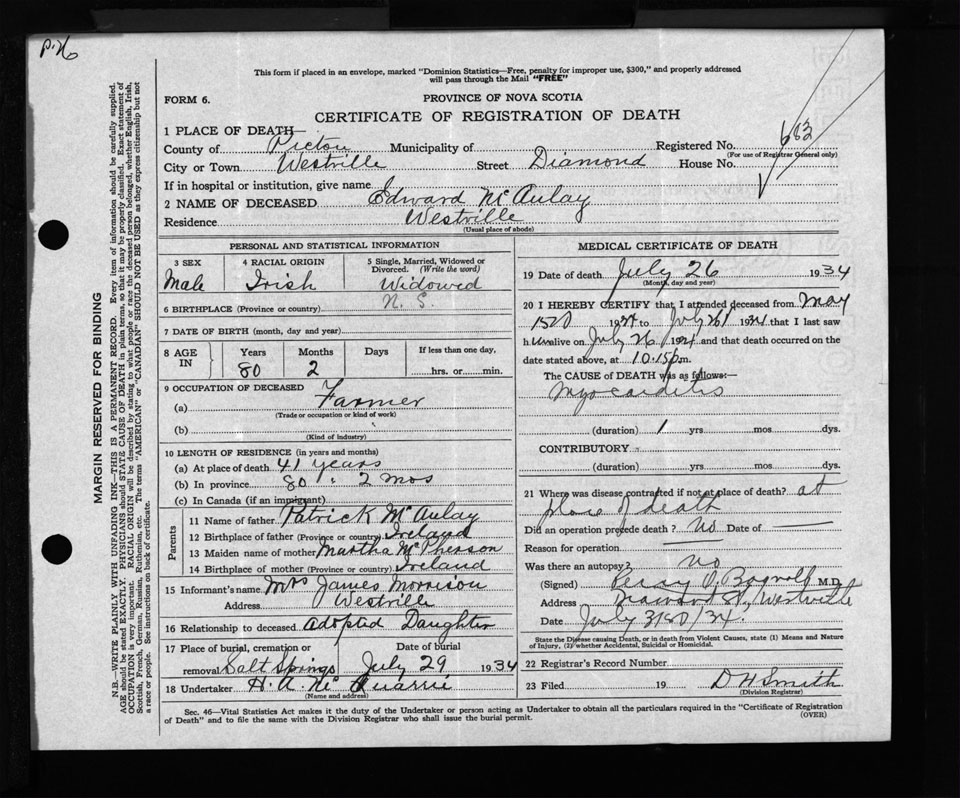 P. 26
This form if placed in an envelope, marked "Dominion Statistics—Free, penalty for improper use, $300," and properly addressed
will pass through the Mail "FREE"
FORM 6.
PROVINCE OF NOVA SCOTIA
CERTIFICATE OF REGISTRATION OF DEATH
1 PLACE OF DEATH—
County of Pictou Municipality of Registered No. 683
(For use of Registrar General only)
City or Town Westville Street Diamond House No.
If in hospital or institution, give name
2 NAME OF DECEASED Edward McAulay
Residence Westville
(Usual place of abode)
PERSONAL AND STATISTICAL INFORMATION
3 SEX Male
4 RACIAL ORIGIN Irish
5 Single, Married, Widowed or Divorced. (Write the word) Widowed
6 BIRTHPLACE (Province or country) N. S.
7 DATE OF BIRTH (month, day and year)
8 AGE IN Years 80 Months 2 Days If less than one day, hrs. or min.
9 OCCUPATION OF DECEASED
(a) Farmer
(Trade or occupation or kind of work)
(b)
(Kind of industry)
10 LENGTH OF RESIDENCE (in years and months)
(a) At place of death 41 years
(b) In province 80 " 2 mos
(c) In Canada (if an immigrant)
Parents
11 Name of father Patrick McAulay
12 Birthplace of father (Province or country) Ireland
13 Maiden name of mother Martha McPherson
14 Birthplace of mother (Province or country) Ireland
15 Informant's name Mrs James Morrison
Address Westville
16 Relationship to deceased Adopted Daughter
17 Place of burial, cremation or removal Salt Springs Date of burial July 29 1934
18 Undertaker H. A. McQuarrie
(Name and address)
MEDICAL CERTIFICATE OF DEATH
19 Date of death July 26 1934
(Month, day and year)
20 I HEREBY CERTIFY that I attended deceased from May
1934 to July 26 1934 that I last saw
h im alive on July 26 1934 and that death occurred on the
date stated above, at 10.15 p.m.
The CAUSE of DEATH was as follows:—
Myocarditis
(duration) 1 yrs mos dys.
CONTRIBUTORY
(duration) yrs mos dys.
21 Where was disease contracted if not at place of death? at
place of death
Did an operation precede death? no Date of —
Reason for operation —
Was there an autopsy? no
(Signed) M.D.
Address Westville
Date July 34.
State the Disease causing Death, or in death from Violent Causes, state (1) Means and Nature
of Injury, (2) whether Accidental, Suicidal or Homicidal.
22 Registrar's Record Number
23 Filed 19 D H Smith
(Division Registrar)
Sec. 46—Vital Statistics Act makes it the duty of the Undertaker or person acting as Undertaker to obtain all the particulars required in the "Certificate of Registration
of Death" and to file the same with the Division Registrar who shall issue the burial permit.
(OVER)
MARGIN RESERVED FOR BINDING
N.B.—WRITE PLAINLY WITH UNFADING INK—THIS IS A PERMANENT RECORD. Every item of information should be carefully supplied.
AGE should be stated EXACTLY. PHYSICIANS should STATE CAUSE OF DEATH in plain terms, so that it may be properly classified. Exact statement of
OCCUPATION is very important. RACIAL ORIGIN will be described by stating to what people or race the deceased person belonged, whether English, Irish,
Scottish, French, German, Russian, Ruthenian, etc. The terms "AMERICAN" or "CANADIAN" SHOULD NOT BE USED as they express citizenship but not
a race or people. See instructions on back of certificate.